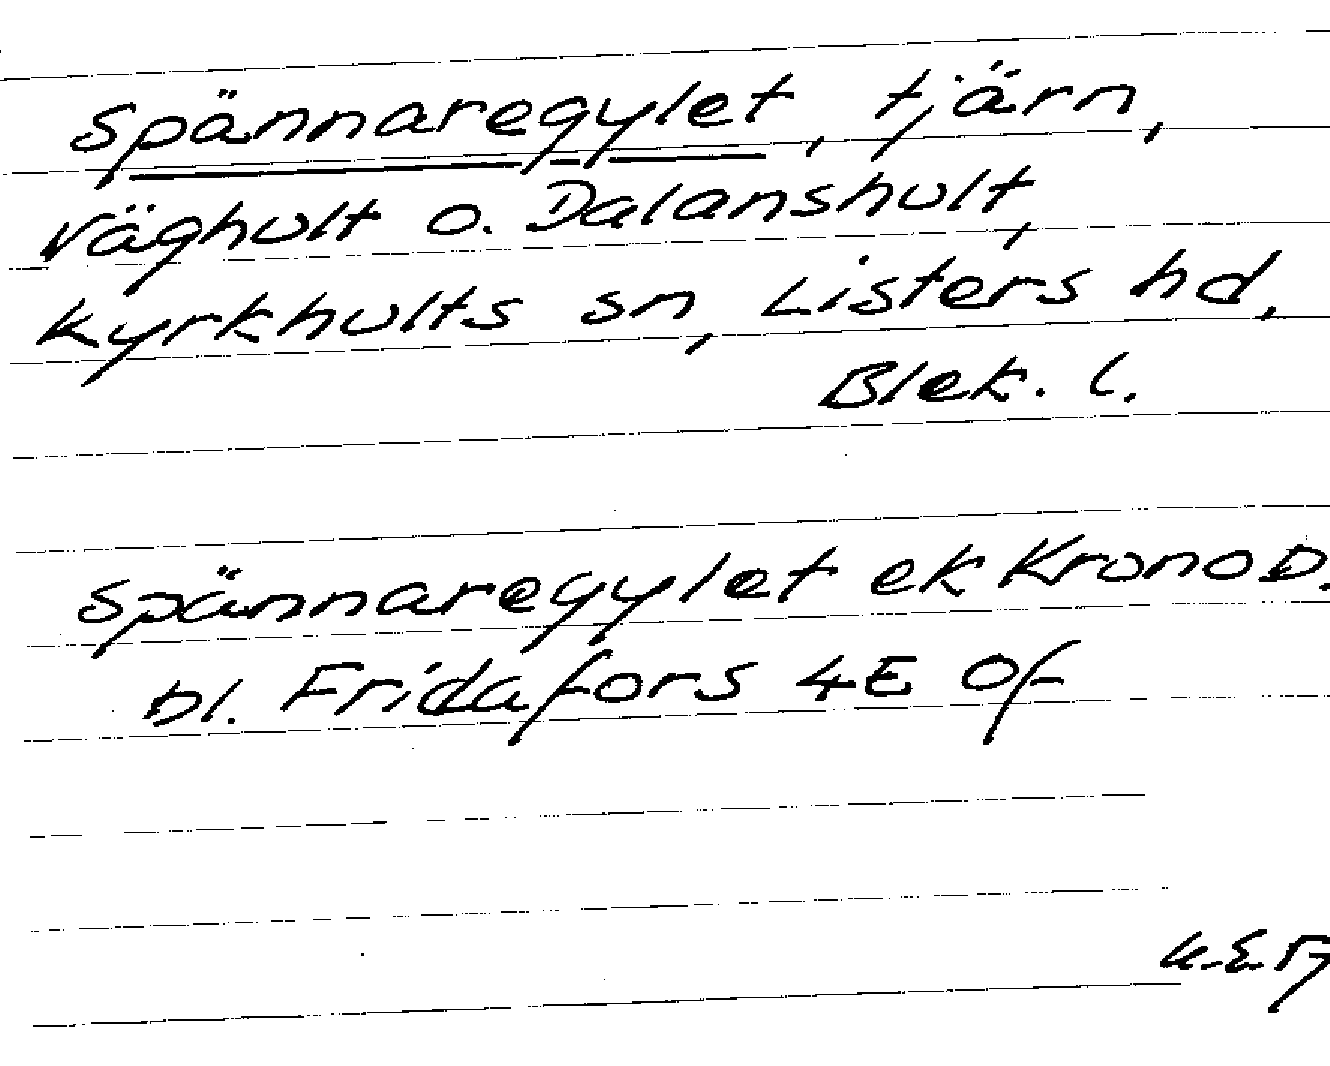 Spännaregylet, tjärn,
Väghult o. Dalanshult,
Kyrkhults sn, Listers hd,
Blek. l.
Spännaregylet ek KronoD.
bl. Fridafors 4E Of